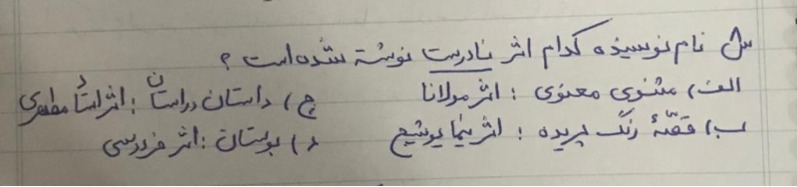 س نام نویسنده کدام اثر نادرست نوشته شده است ؟
الف) مثنوی معنوی : اثر مولانا ج) داستان راستان : اثر استاد مطهری
ب) قصّهٔ رنگ پریده : اثر نیما یوشیج د) بوستان : اثر فردوسی